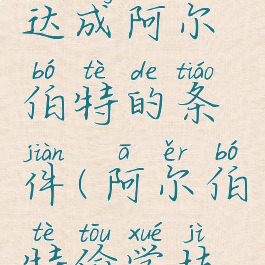 达成阿尔
bó tè de tiáo
伯特的条
jiàn ā ěr bó
件(阿尔伯
tè tōu xué jì
特偷学技